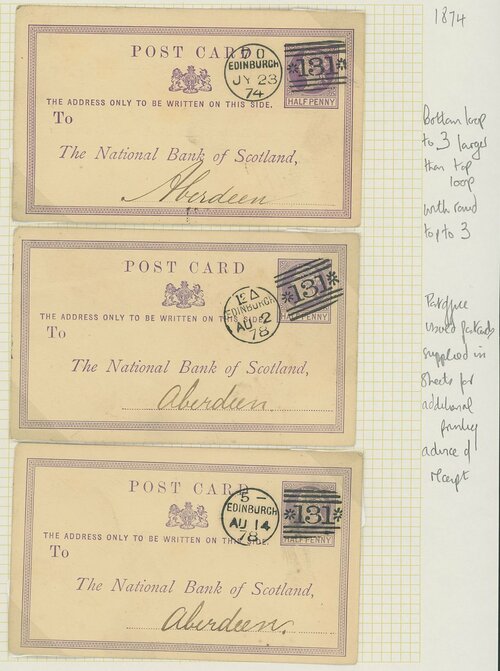 1874
POST CARD
70
EDINBURGH
JY 23
74
131
HALFPENNY
THE ADDRESS ONLY TO BE WRITTEN ON THIS SIDE.
To
The National Bank of Scotland,
Aberdeen
Bottom loop
to 3 larger
than top
loop
with round
top to 3
POST CARD
EDINBURGH
AU 2
78
131
HALFPENNY
THE ADDRESS ONLY TO BE WRITTEN ON THIS SIDE.
To
The National Bank of Scotland,
Aberdeen.
supplied in
sheets for
additional
printing
advice of
receipt
POST CARD
5 –
EDINBURGH
AU 14
78
131
HALFPENNY
THE ADDRESS ONLY TO BE WRITTEN ON THIS SIDE.
To
The National Bank of Scotland,
Aberdeen.